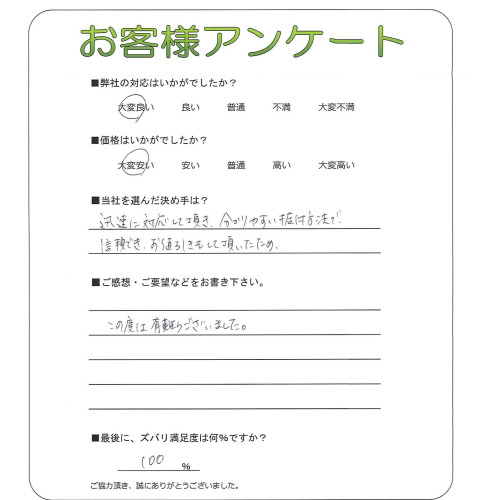 お客様アンケート
■弊社の対応はいかがでしたか？
大変良い 良い 普通 不満 大変不満
■価格はいかがでしたか？
大変安い 安い 普通 高い 大変高い
■当社を選んだ決め手は？
迅速に対応して頂き、分かりやすい 方法で
信頼でき、お値引きもして頂いたため、
■ご感想・ご要望などをお書き下さい。
この度は有難うございました。
■最後に、ズバリ満足度は何%ですか？
100 %
ご協力頂き、誠にありがとうございました。